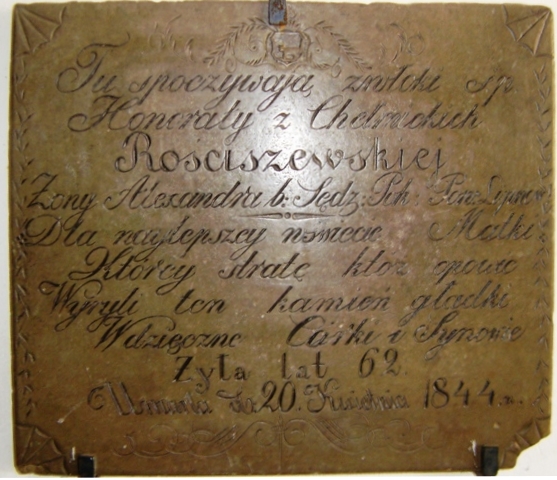 Tu spoczywają zwłoki śp
Honoraty z Chełmickich
Rościszewskiej
Żony Alexandra b: Sędz: Pok:
Dla najlepszey w świecie Matki
Którey stratę któż opowie
Wyryli ten kamień gładki
Wdzięczne Córki i Synowie
Żyła lat 62
Umarła d. 20. Kwietnia 1844 r.